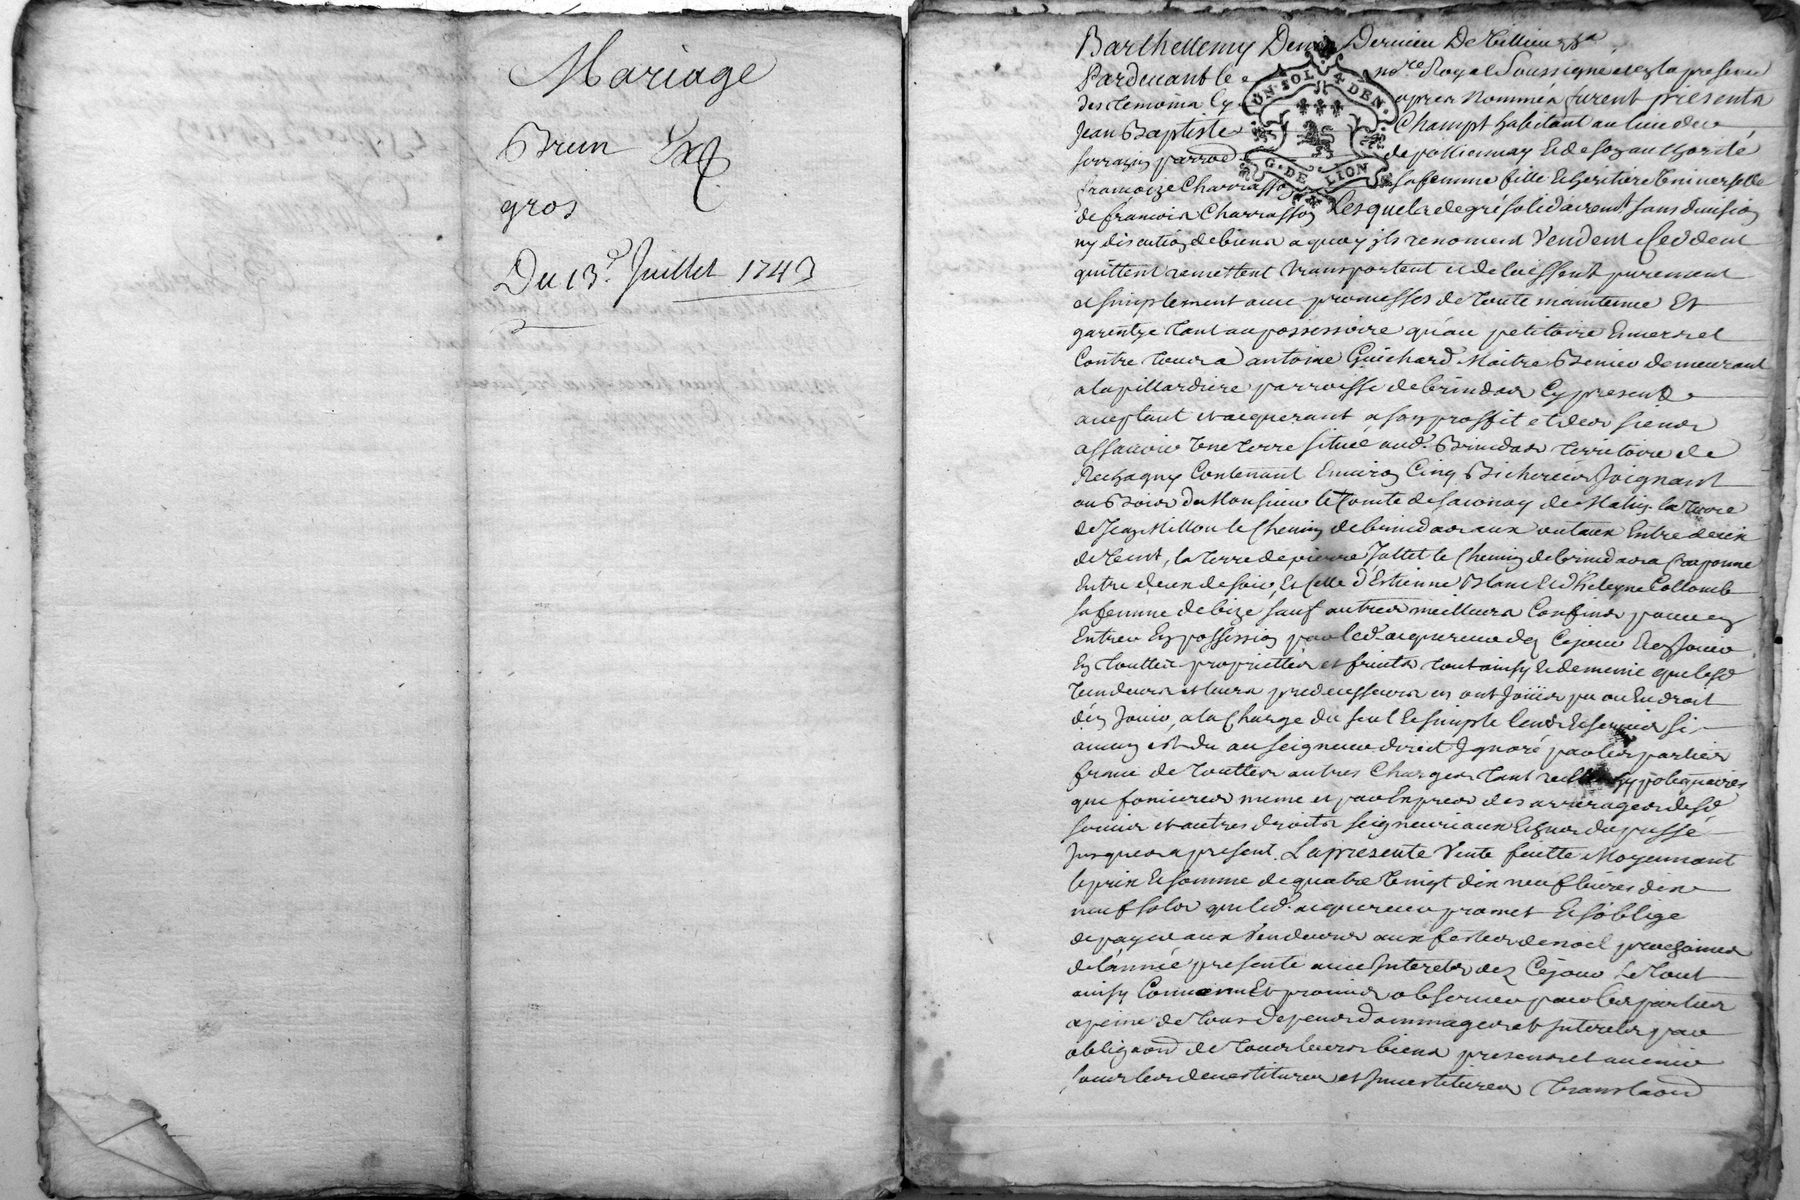 Mariage
Brun Exp
gros
Du 13e. Juillet 1743
Barthellemy Dernieu De Tillieu
UN. SOL. 4 DEN.
G. DE LION
Pardevant le no.re Royal Soussigné et en la presence
des temoins Cy apres Nommés furent presents
Jean Baptiste Champt habitant au lieu de
sarrazin parroisse de pollionnay Et de son authorité
francoize Charrasson sa femme fille Et heritiere Universelle
de francois Charrasson Lesquels de gré solidairemt. sans division
ny discution de biens a quoy ils renoncent Vendent Ceddent
quittent remettent transportent et delaissent purement
et simplement avec promesses de toute maintenue Et
garentye tant au possessoire qu'au petitoire Envers et
Contre tous a antoine Guichard Maitre demeurant
a la pillardiere parroisse de brindas Cy present
acceptant et acquerant a son proffit et des siens
assavoir Une terre située aud. Brindas territoire de
Rechagny Contenant Environ Cinq Bicherées Joignant
au Bois de Monsieur le Comte de saconay de Matin la terre
de Jean Millon le Chemin de brindas aux Entre deux
de Vent, la terre de pierre Jullet le Chemin de brindas a Craponne
Entre deux de soir, Et Celle d'Estienne Blanc Et d'heleyne Collomb
sa femme de bize sauf autres meilleurs Confins pour en
Entrer En possession par led. acquereur dez Cejour Et En Jouir
En toutte proprietté et fruits tout ainsy Et de meme que lesd.
Vendeurs et leurs predecesseurs en ont Joüi pu ou Eu droit
d'en Jouir, a la Charge du seul Et simple Cens Et servis si
aucun est du au seigneur direct Ignoré par les parties
franc de touttes autres Charges tant hyppotequaires
que foncieres meme et par Exprés des arrerages desd.
servis et autres droits seigneuriaux Echus du passé
Jusques a present. La presente Vente faitte Moyennant
le prix Et somme de quatre Vingt dix neuf livres dix
neuf sols que led. acquereur promet Et s'oblige
de payer aux Vendeurs aux festes de noel prochaines
de l'année presente avec Interets dez Cejour Le tout
ainsy Convenu Et promis observer par les parties
a peine de tous depens dommages et Interets par
obligaon. de tous leurs biens presens et avenir
sous les devestitures et Investitures translaon.